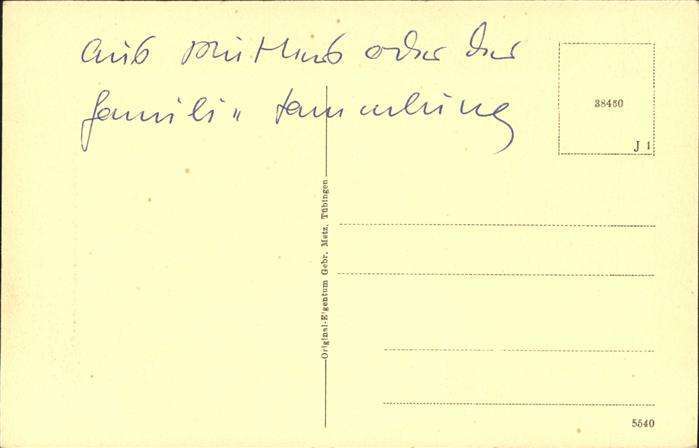 aus oder der
Familien sammlung
38450
J 1
Original-Eigentum Gebr. Metz, Tübingen
5540